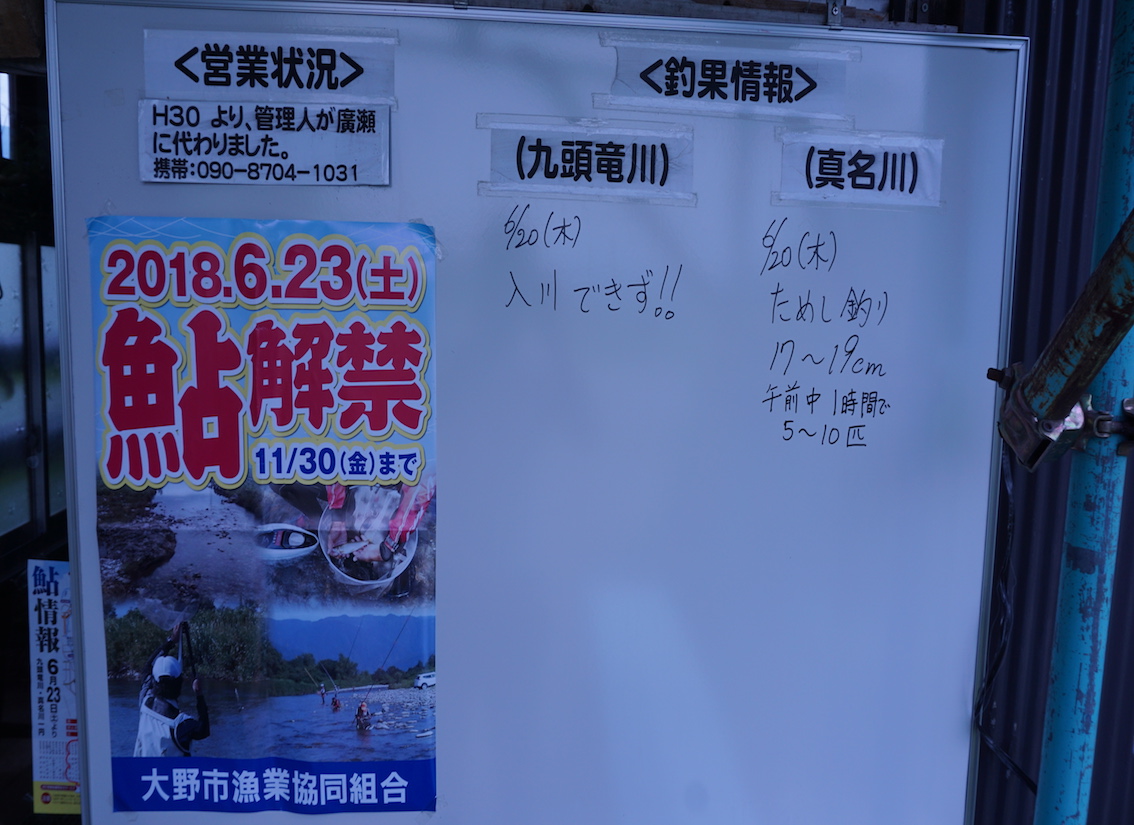 <営業状況>
H30 より、管理人が廣瀬
に代わりました。
携帯:090-8704-1031
<釣果情報>
(九頭竜川)
6/20(木)
入川できず!!
(真名川)
6/20(木)
ためし釣り
17~19cm
午前中1時間で
5~10匹
2018.6.23(土)
鮎解禁
11/30(金)まで
大野市漁業協同組合
鮎情報
6月23日土より
九頭竜川・真名川一円